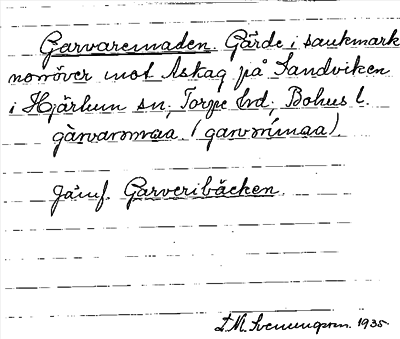 Garvaremaden. Gärde i sankmark
norröver mot Askag på Sandviken
i Hjärtum sn; Torpe hd; Bohus l.
gàrvaromaa. (garvorímaa).
Jämf. Garveribäcken.
S.M. Svenungson. 1935